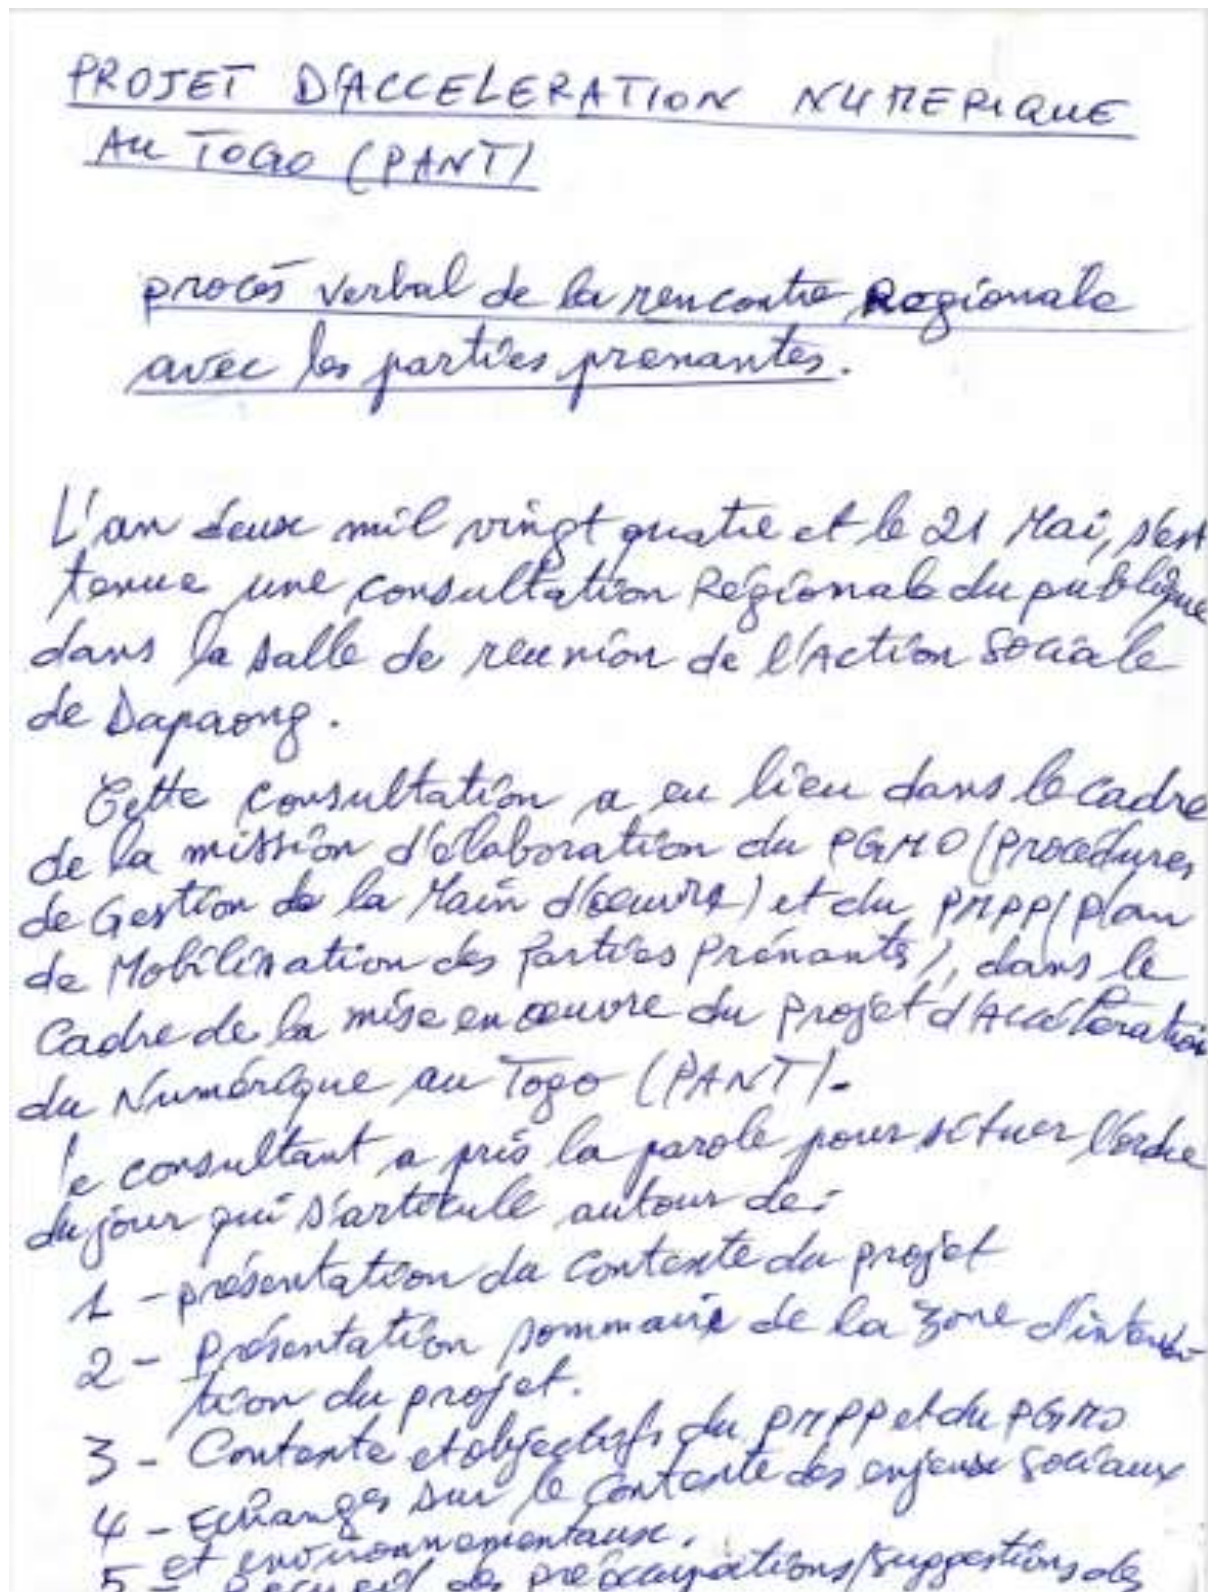 PROJET D'ACCELERATION NUMERIQUE
AU TOGO (PANT)
procès verbal de la rencontre Regionale
avec les parties prenantes.
L'an deux mil vingt quatre et le 21 Mai, s'est
tenue une consultation Régionale du publique
dans la salle de reunion de l'Action Sociale
de Dapaong.
Cette consultation a eu lieu dans le cadre
de la mission d'élaboration du PGMO (Procédures
de Gestion de la Main d'oeuvre) et du PMPP (plan
de Mobilisation des Parties Prénants), dans le
Cadre de la mise en oeuvre du projet d'Accélération
du Numérique au Togo (PANT).
le consultant a pris la parole pour situer l'ordre
du jour qui s'articule autour de:
1 - présentation du Contexte du projet
2 - Présentation sommaire de la zone
tion du projet.
3 - Contexte et objectifs du PMPP et du PGMO
4 - Echanges sur le contexte des enjeux sociaux
et environnementaux.
5 - Recueil des préoccupations/suggestions de